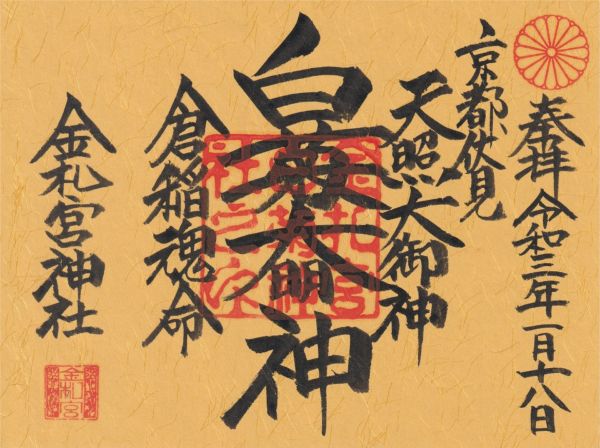 奉拝 令和三年一月十八日
京都伏見
天照大御神
白菊大明神
倉稲魂命
金札宮神社
金札宮